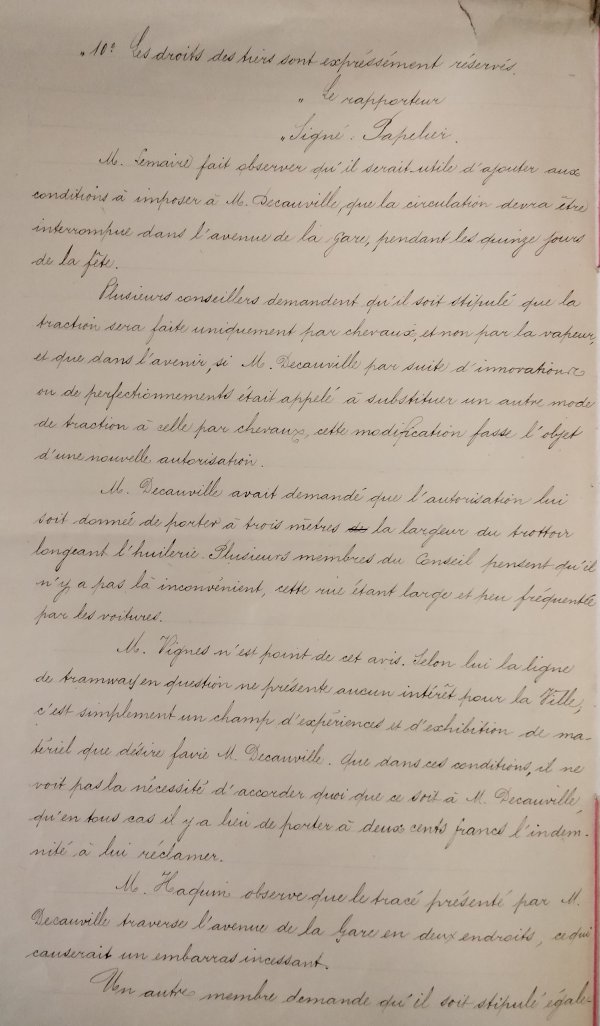 „ 10º Les droits des tiers sont expréssément réservés.
„ Le rapporteur
„ Signé : Papelier.
M. Lemaire fait observer qu'il serait utile d'ajouter aux
conditions à imposer à M. Decauville, que la circulation devra être
interrompue dans l'avenue de la Gare, pendant les quinze jours
de la fête.
Plusieurs conseillers demandent qu'il soit stipulé que la
traction sera faite uniquement par chevaux, et non par la vapeur,
et que dans l'avenir, si M. Decauville par suite d'innovations
ou de perfectionnements était appelé à substituer un autre mode
de traction à celle par chevaux, cette modification fasse l'objet
d'une nouvelle autorisation.
M. Decauville avait demandé que l'autorisation lui
soit donnée de porter à trois mètres de la largeur du trottoir
longeant l'huilerie. Plusieurs membres du Conseil pensent qu'il
n'y a pas là inconvénient, cette rue étant large et peu fréquentée
par les voitures.
M. Vignes n'est point de cet avis. Selon lui la ligne
de tramway en question ne présente aucun intérêt pour la Ville,
c'est simplement un champ d'expériences et d'exhibition de ma-
tériel que désire favrie M. Decauville. Que dans ces conditions, il ne
voit pas la nécessité d'accorder quoi que ce soit à M. Decauville,
qu'en tous cas il y a lieu de porter à deux cents francs l'indem-
nité à lui réclamer.
M. Haquin observe que le tracé présenté par M.
Decauville traverse l'avenue de la Gare en deux endroits, ce qui
causerait un embarras incessant.
Un autre membre demande qu'il soit stipulé égale-